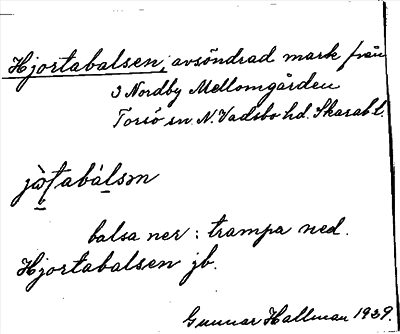 Hjortabalsen; avsöndrad mark från
3 Nordby Mellomgården
Torsö sn. N. Vadsbo hd. Skarab. l.
jò̱̱ʈabàlsən
balsa ner : trampa ned.
Hjortabalsen jb.
Gunnar Hallman 1939.